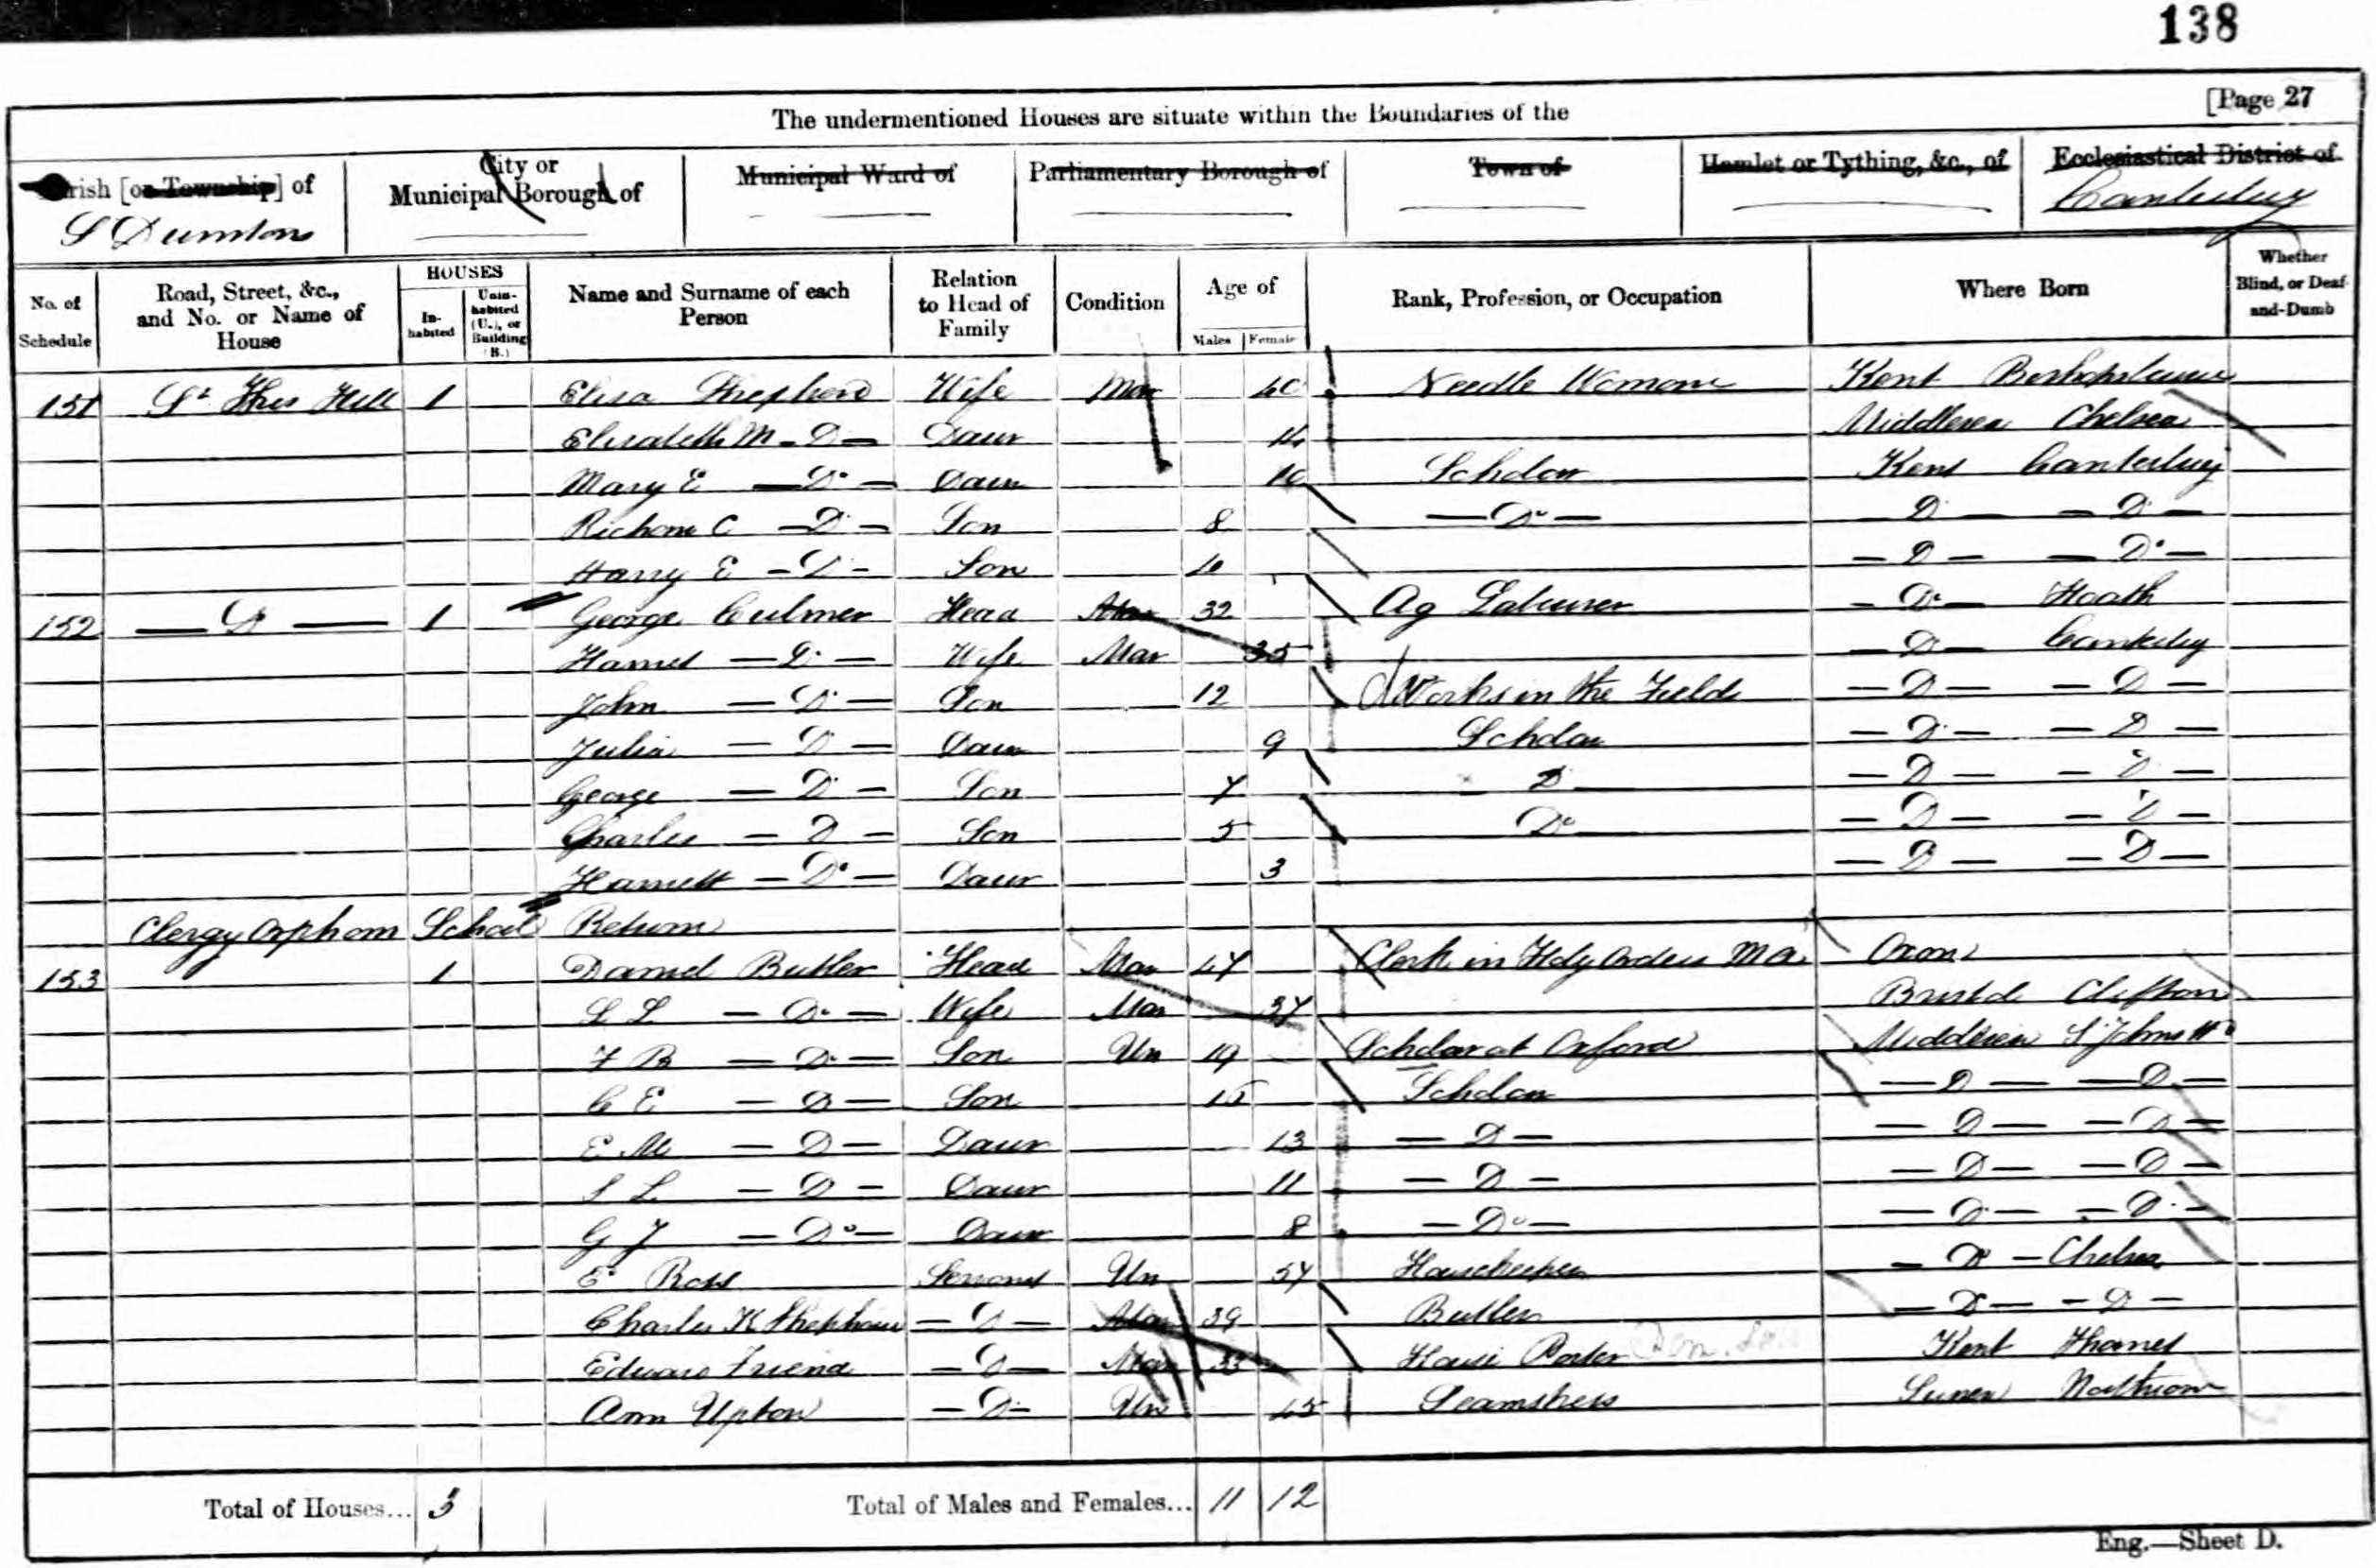 138
[Page 27
The undermentioned Houses are situate within the Boundaries of the
Parish [or Township] of City or Municipal Borough of Municipal Ward of Parliamentary Borough of Town of Hamlet or Tything, &c., of Ecclesiastical District of
S Dunstans Canterbury
No. of Schedule Road, Street, &c., and No. or Name of House HOUSES Inhabited Uninhabited (U.), or Building (B.) Name and Surname of each Person Relation to Head of Family Condition Age of Males Females Rank, Profession, or Occupation Where Born Whether Blind, or Deaf-and-Dumb
151 St Thos Hill 1 Eliza Shepherd Wife Mar 40 Needle Woman Kent
Elizabeth M - D - Daur 14 Middlesex Chelsea
Mary E - Do - Daur 10 Scholar Kent Canterbury
Richard C - D - Son 8 - Do - D - D -
Harry E - D - Son - D - - Do -
152 - D - 1 George Culmer Head Mar 32 Ag Labourer - Do - Hoath
Harriet - D - Wife Mar 35 - D - Canterbury
John - D - Son 12 Works in the Fields - D - - D -
Julia - D - Daur 9 Scholar - D - - D -
George - D - Son 7 D - D - - D -
Charles - D - Son 5 Do - D - - D -
Harriett - Do - Daur 3 - D - - D -
Clergy Orphan School Return
153 1 Daniel Butler Head Mar 47 Clerk in Holy Orders MA Oxon
L L - Do - Wife Mar 37 Bristol Clifton
F B - D - Son Un 19 Scholar at Oxford Middlesex St Johns Wd
C E - D - Son 15 Scholar - D - - D -
E M - D - Daur 13 - D - - D - - D -
S L - D - Daur 11 - D - - D - - D -
G J - Do - Daur 8 - Do - - D - - D -
E Ross Servant Un 57 Housekeeper - D - Chelsea
Charles K Shephard - D - Mar 39 Butler - D - - D -
Edward Friend - D - Mar 33 House Porter Dom. Kent Thanet
Ann Upton - D - Un 45 Seamstress Sussex Northiam
Total of Houses... 3 Total of Males and Females... 11 12
Eng.—Sheet D.